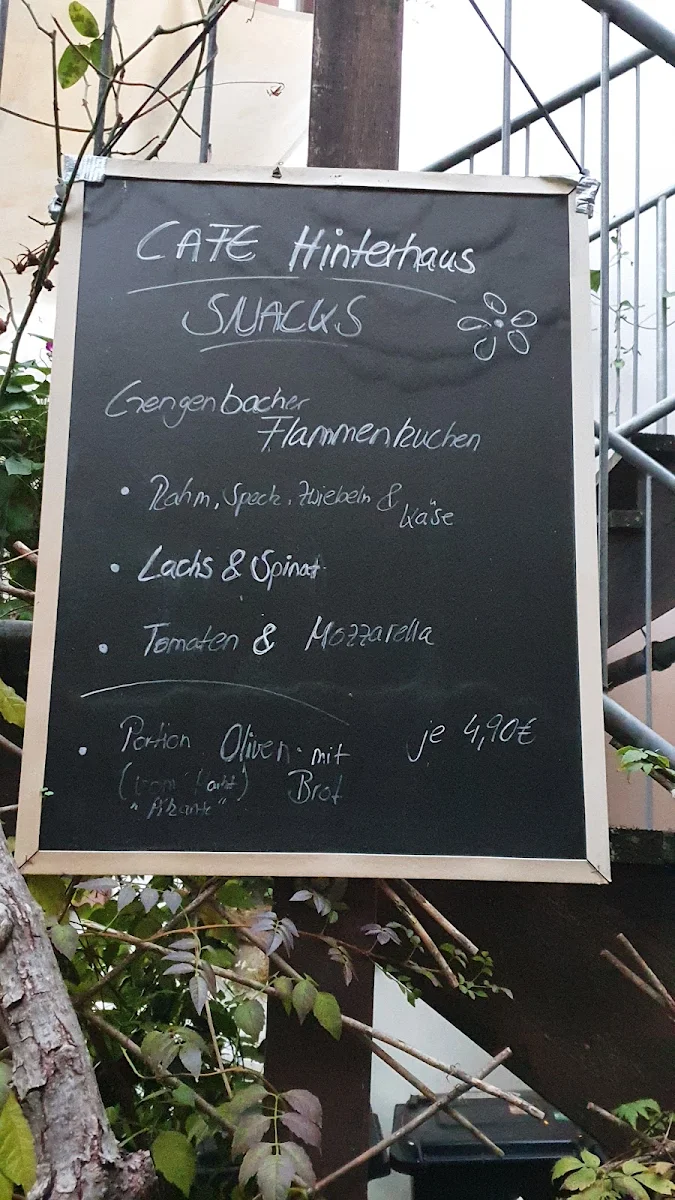 CAFE Hinterhaus
SNACKS
Gengenbacher
Flammenkuchen
• Rahm, Speck, Zwiebeln &
Käse
• Lachs & Spinat
• Tomaten & Mozzarella
• Portion Oliven mit je 4,90€
(vom Markt) Brot